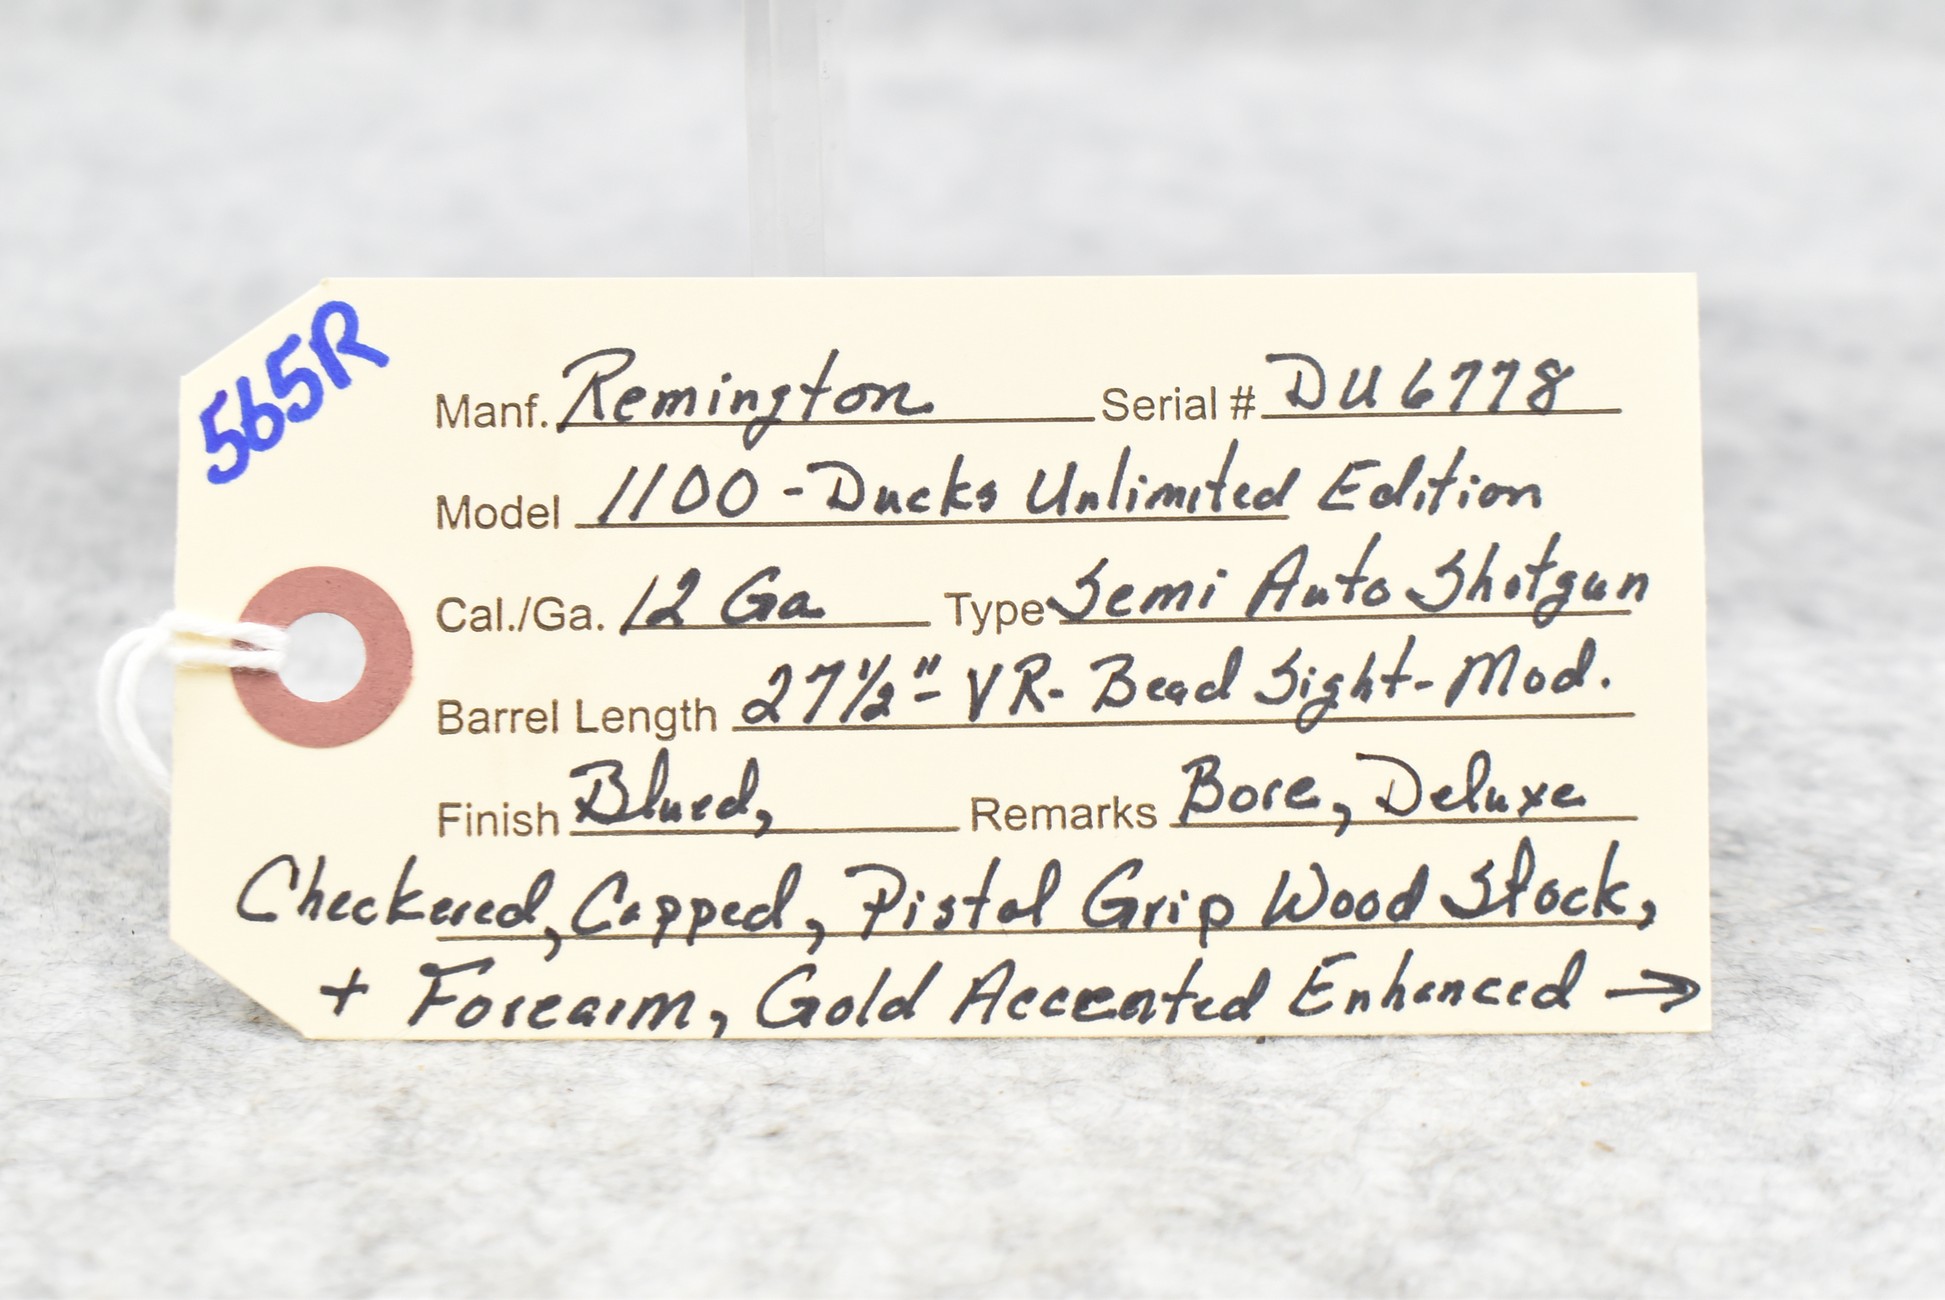 565R
Manf. Remington Serial # DU6778
Model 1100 - Ducks Unlimited Edition
Cal./Ga. 12 Ga Type Semi Auto Shotgun
Barrel Length 27½"- VR- Bead Sight- Mod.
Finish Blued, Remarks Bore, Deluxe
Checkered, Capped, Pistol Grip Wood Stock,
+ Forearm, Gold Accented Enhanced →